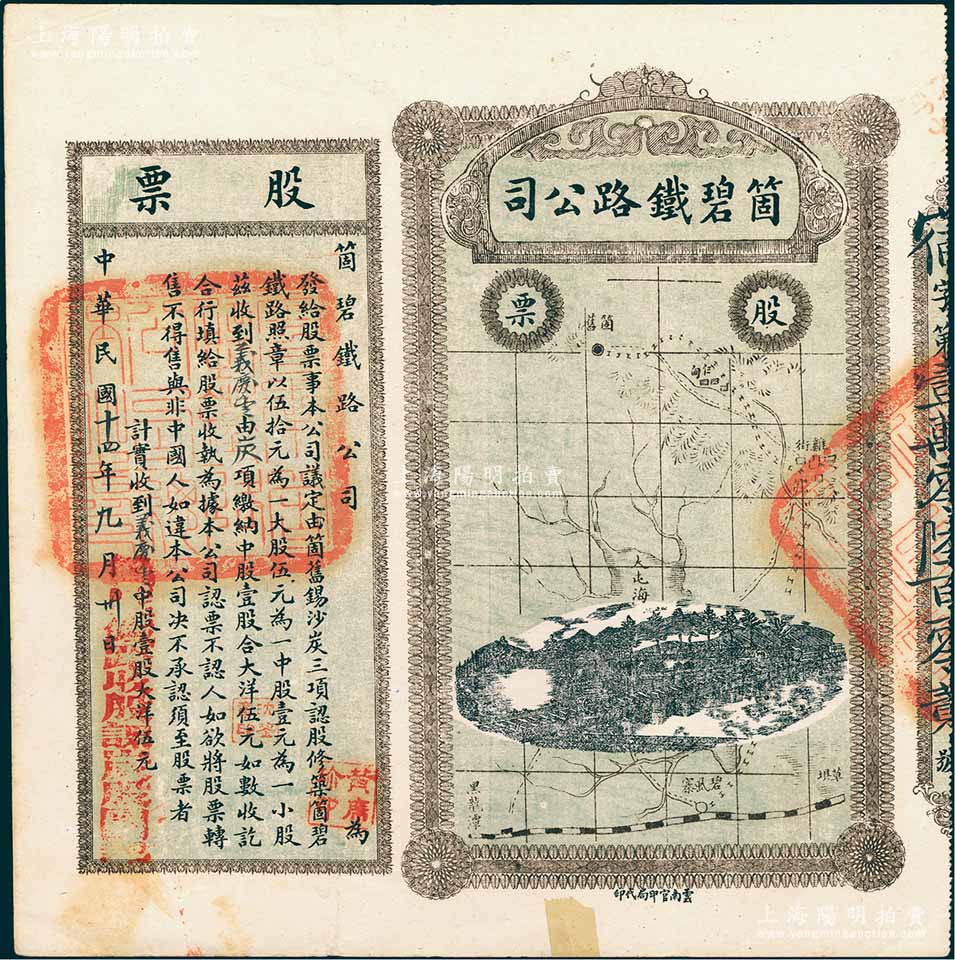 上海陽明拍賣
www.yangmingauction.com
箇碧鐵路公司
股票
箇舊
雞街
大屯海
碧虱寨
草壩
黑龍潭
雲南官印局代印
股票
箇碧鐵路公司為
發給股票事本公司議定由箇舊錫沙炭三項認股修築箇碧
鐵路照章以伍拾元為一大股伍元為一中股壹元為一小股
茲收到義慶 由炭項繳納中股壹股合大洋伍元如數收訖
合行填給股票收執為據本公司認票不認人如欲將股票轉
售不得售與非中國人如違本公司決不承認須至股票者
計實收到義慶 中股壹股大洋伍元
中華民國十四年九月卅日
字第壹萬零陸百零壹號
上海陽明拍賣
www.yangmingauction.com
上海陽明拍賣
www.yangmingauction.com